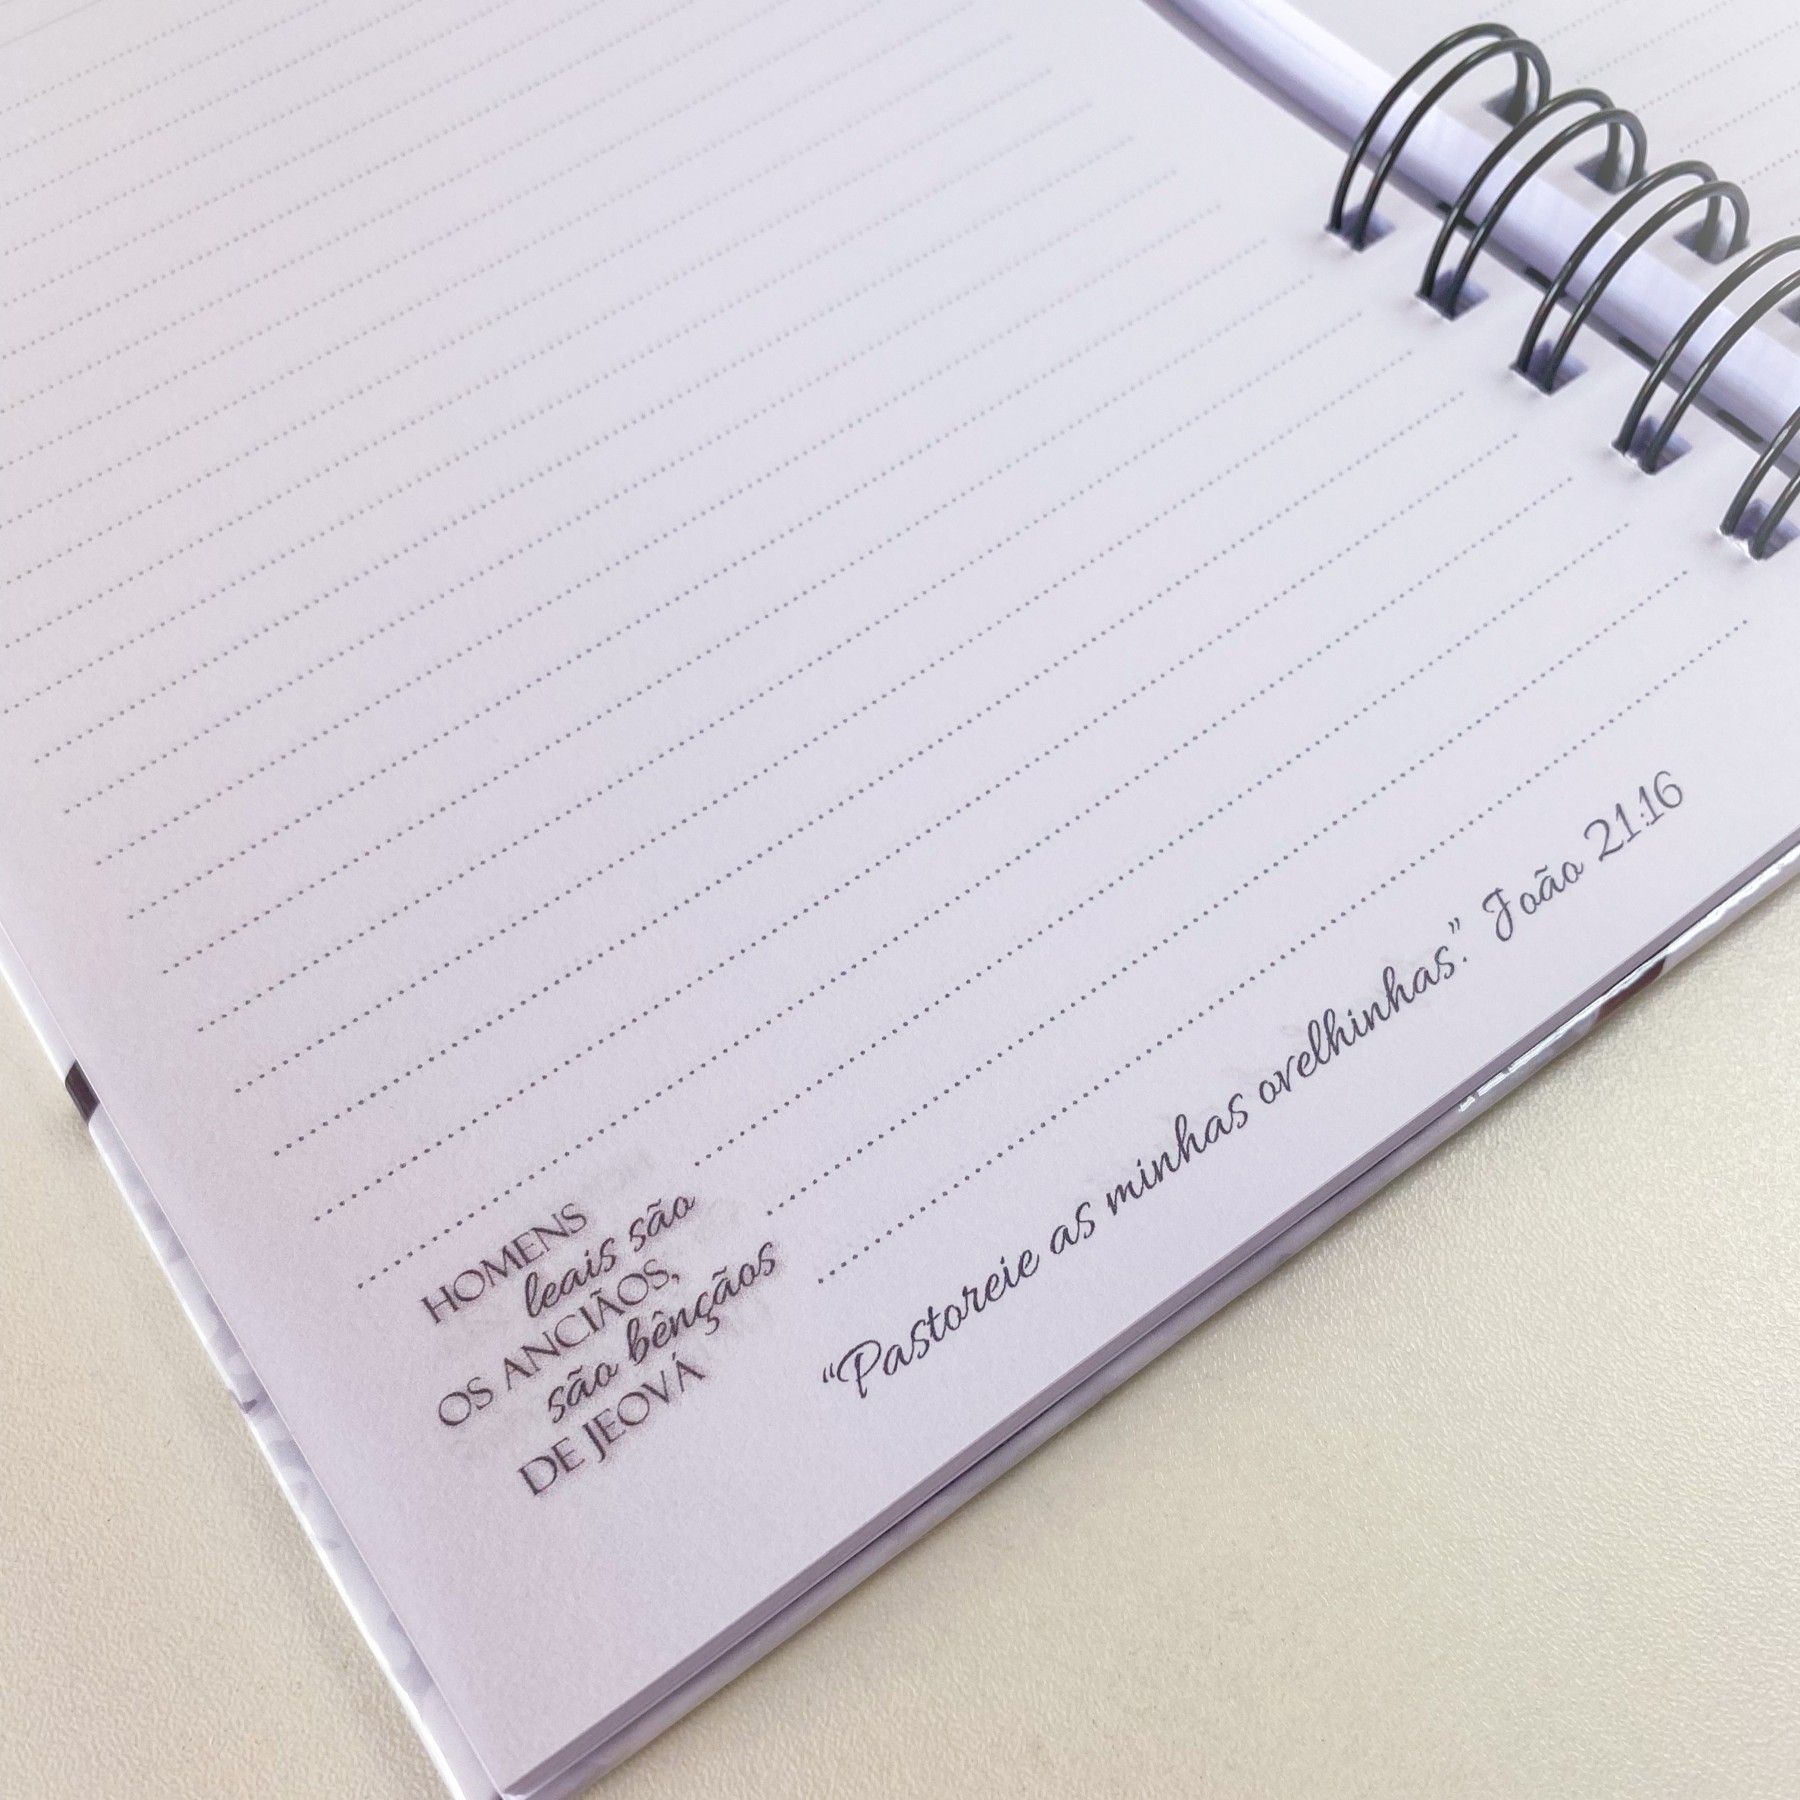 HOMENS
leais são
OS ANCIÃOS,
são bênçãos
DE JEOVÁ
“Pastoreie as minhas ovelhinhas”. João 21:16